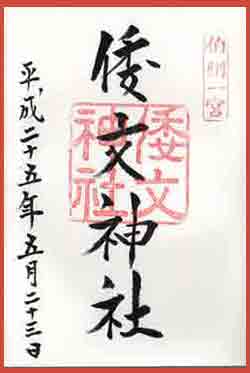 伯州一宮
倭文神社
倭文
神社
平成二十五年五月二十三日